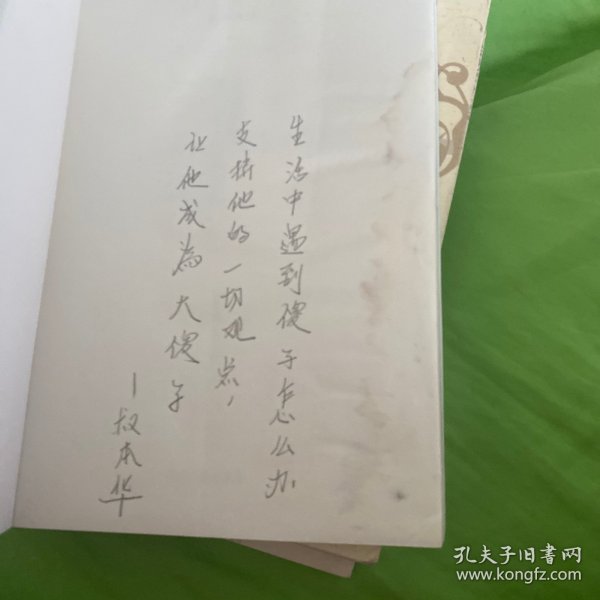 生活中遇到傻子怎么办
支持他的一切观点，
让他成為大傻子
—叔本华
孔夫子旧书网
www.kongfz.com